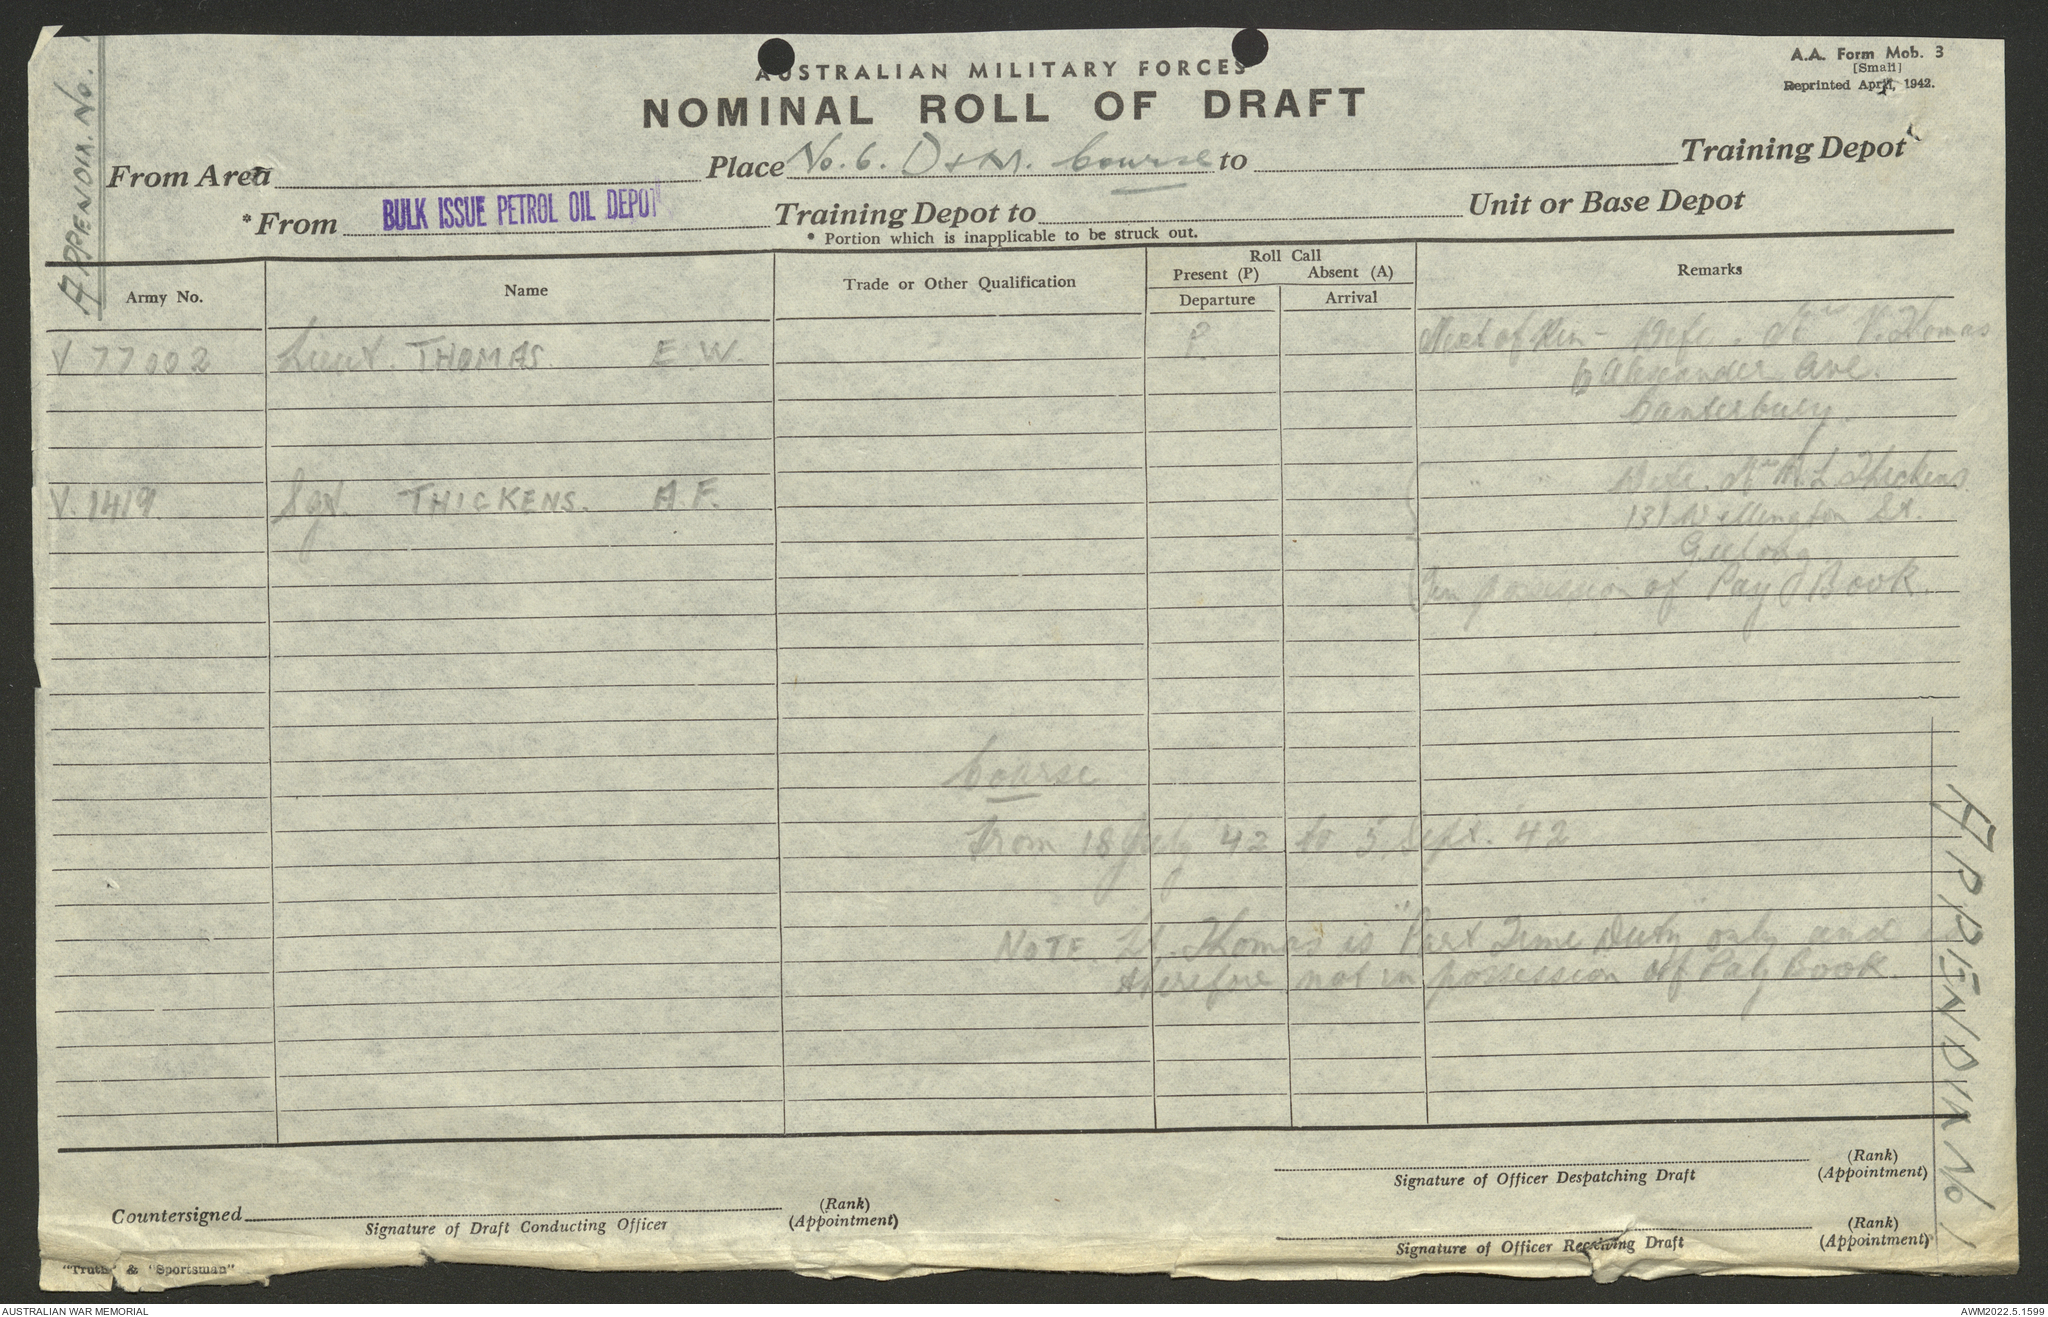 APPENDIX. No. 1
A.A. Form Mob. 3
[Small]
Reprinted April, 1942.
AUSTRALIAN MILITARY FORCES
NOMINAL ROLL OF DRAFT
From Area Place No. 6. D & M. Course to Training Depot
* From BULK ISSUE PETROL OIL DEPOT Training Depot to Unit or Base Depot
* Portion which is inapplicable to be struck out.
Army No. Name Trade or Other Qualification Roll Call Remarks
Present (P) Absent (A)
Departure Arrival
V 77002 Lieut. THOMAS. E. W. P. Next of Kin - Wife. Mrs V. Thomas
6 Alexander Ave.
Canterbury.
V. 1419. Sgt. THICKENS. A. F. " " Wife. Mrs L. Thickens.
131 Wellington St.
Geelong
In possession of Pay Book.
Course
from 18 July '42 to 5 Sept. '42
NOTE. Lt. Thomas is "Part Time Duty" only and is
therefore not in possession of Pay Book.
APPENDIX No 1
Signature of Officer Despatching Draft (Rank)
(Appointment)
Countersigned (Rank)
Signature of Draft Conducting Officer (Appointment)
Signature of Officer Receiving Draft (Rank)
(Appointment)
"Truth" & "Sportsman"
AUSTRALIAN WAR MEMORIAL AWM2022.5.1599